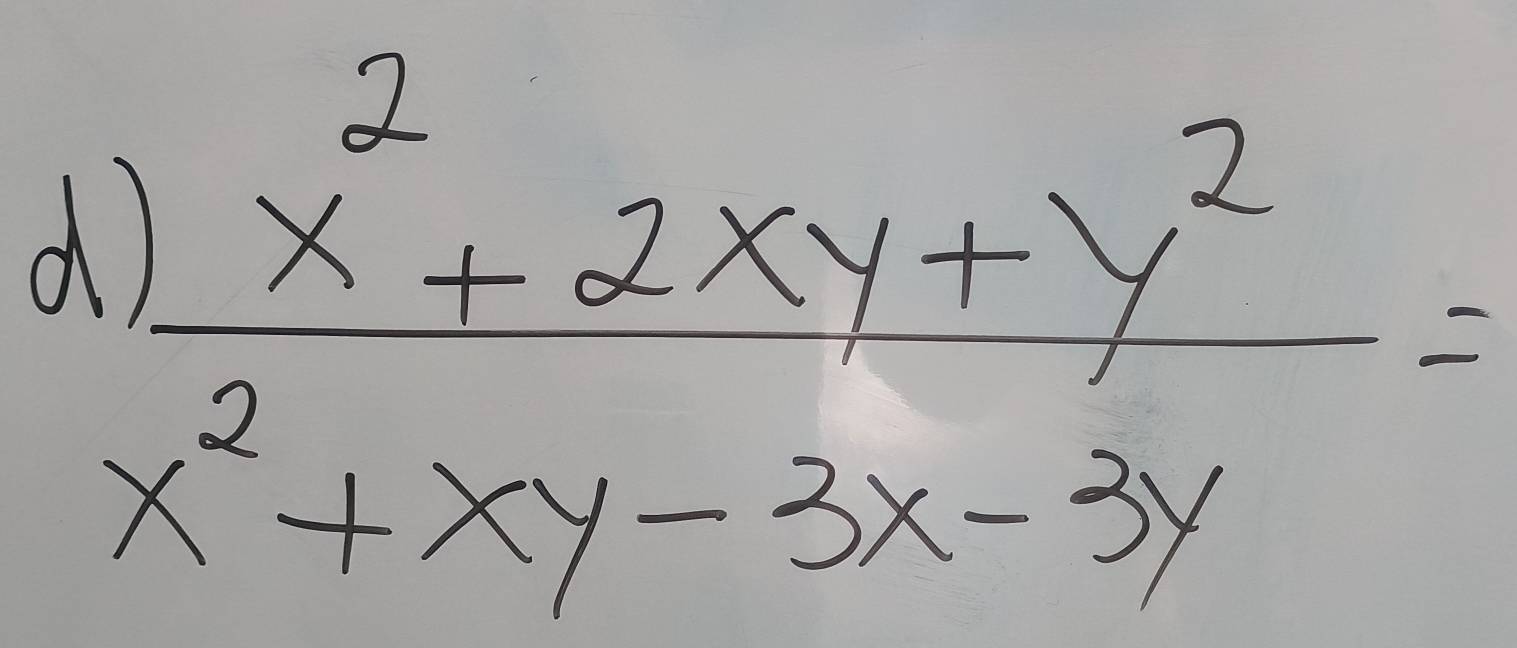 d) x² + 2xy + y² =
x² + xy - 3x - 3y